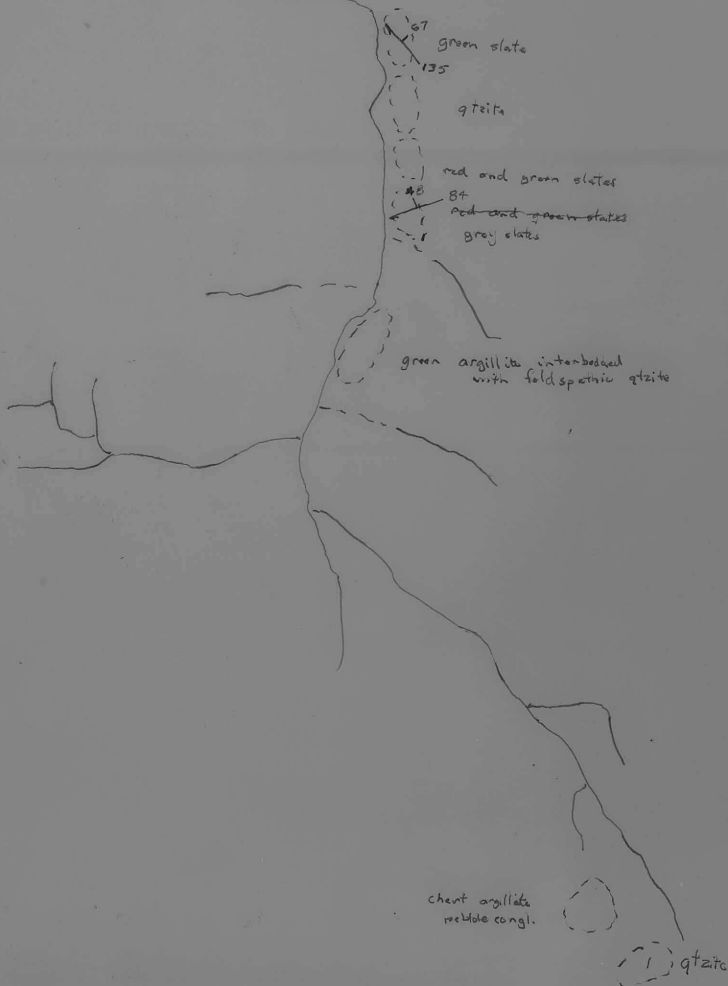 67
green slate
135
qtzite
red and green slates
48
84
red and green slates
grey slates
green argillite interbedded
with feldspathic qtzite
chert argillite
pebble congl.
qtzite